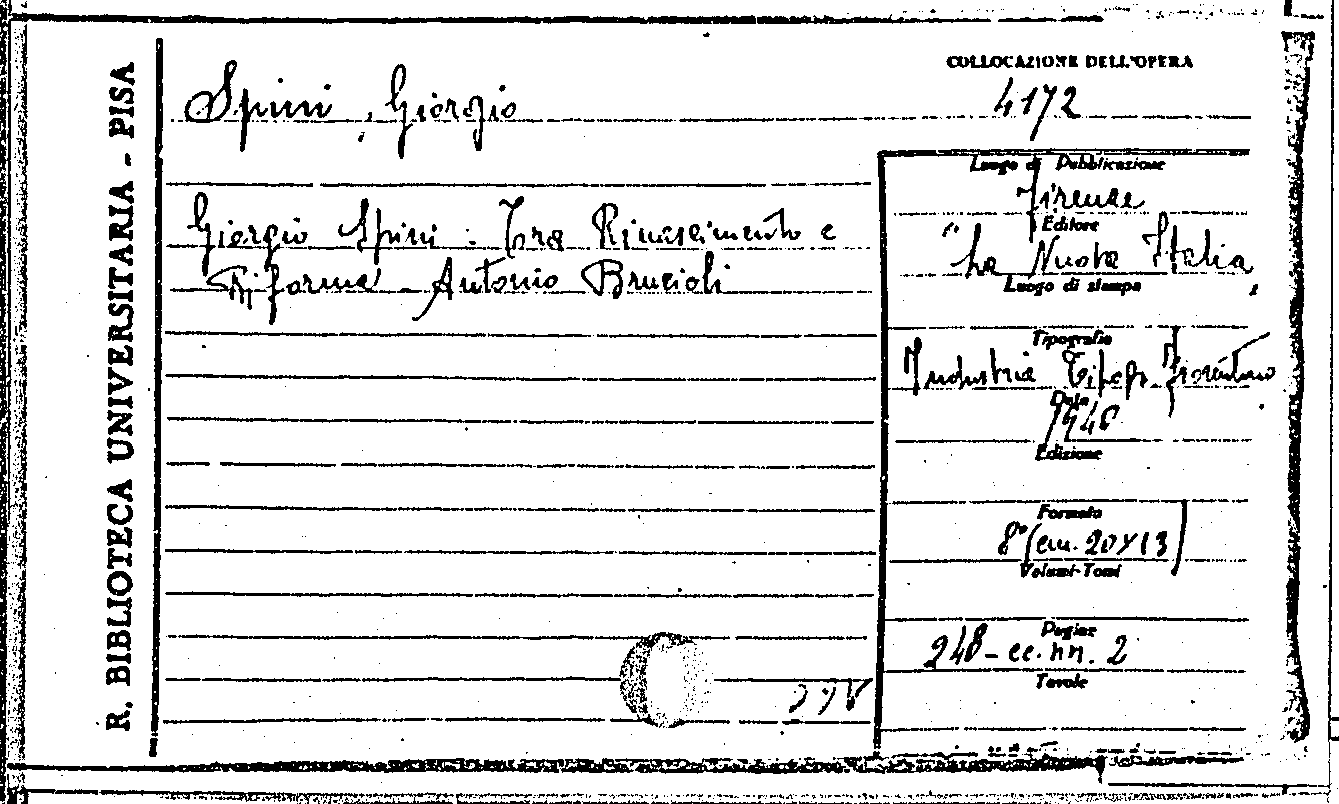 R. BIBLIOTECA UNIVERSITARIA - PISA
Spini, Giorgio
COLLOCAZIONE DELL'OPERA
4172
Giorgio Spini : Tra Rinascimento e
Riforma - Antonio Brucioli
Luogo di Pubblicazione
Firenze
Editore
"La Nuova Italia,,
Luogo di stampa
Tipografia
Industria Tipogr. Fiorentina
Data
1940
Edizione
Formato
8° (cm. 20x13)
Volumi-Tomi
Pagine
248 - cc. nn. 2
Tavole